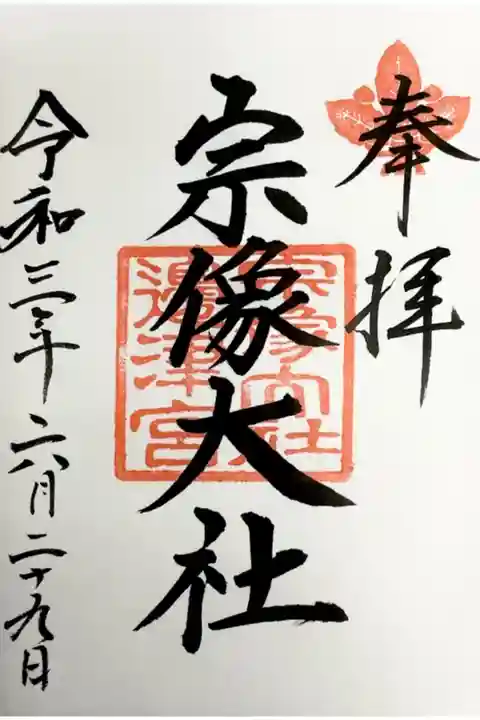 奉拝
宗像大社
宗像大社
邉津宮
令和三年六月二十九日